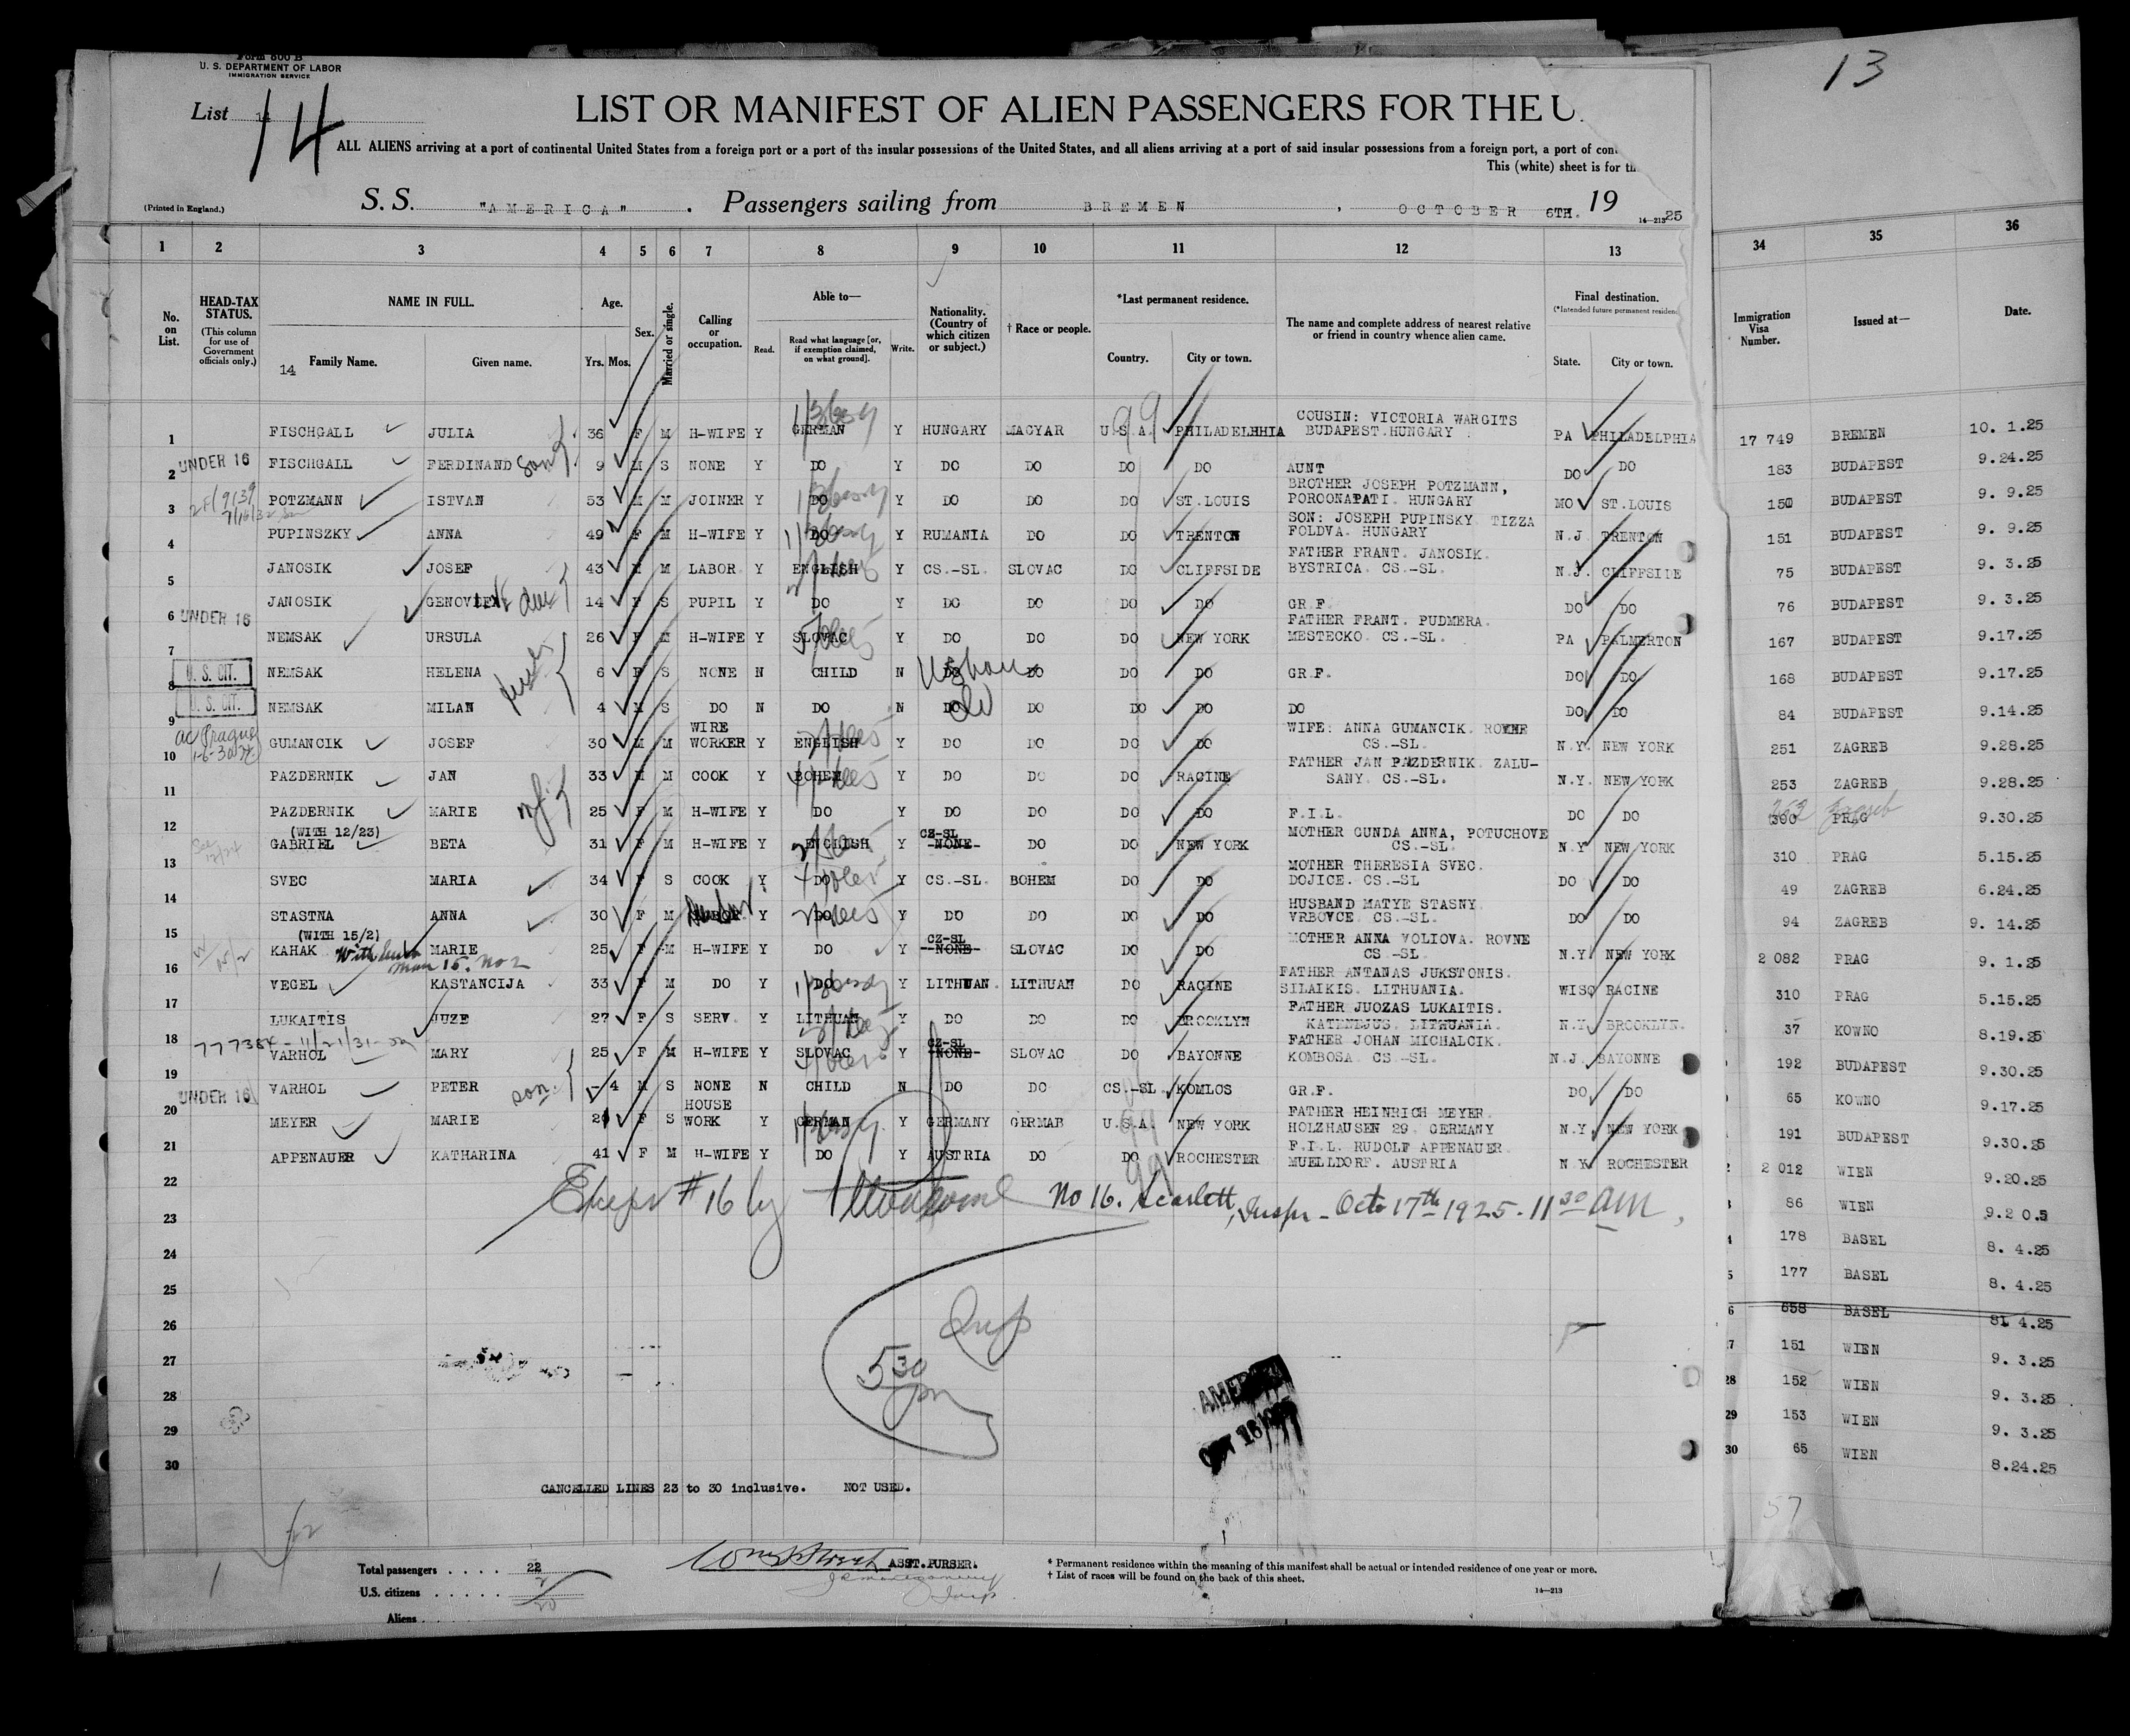 Form 600 B
U. S. DEPARTMENT OF LABOR
IMMIGRATION SERVICE
13
List 14
LIST OR MANIFEST OF ALIEN PASSENGERS FOR THE U
ALL ALIENS arriving at a port of continental United States from a foreign port or a port of the insular possessions of the United States, and all aliens arriving at a port of said insular possessions from a foreign port, a port of
This (white) sheet is for
(Printed in England.) S. S. "AMERICA" . Passengers sailing from BREMEN , OCTOBER 6TH. 19 25
14—213
1 2 3 4 5 6 7 8 9 10 11 12 13 34 35 36
No. on List. HEAD-TAX STATUS. (This column for use of Government officials only.) NAME IN FULL. Age. Sex. Married or single. Calling or occupation. Able to— Nationality. (Country of which citizen or subject.) † Race or people. *Last permanent residence. The name and complete address of nearest relative or friend in country whence alien came. Final destination. Immigration Visa Number. Issued at— Date.
14 Family Name. Given name. Yrs. Mos. Read. Read what language [or, if exemption claimed, on what ground]. Write. Country. City or town. (*Intended future permanent State. City or town.
1 FISCHGALL JULIA 36 F M H-WIFE Y GERMAN Y HUNGARY MAGYAR U.S.A. PHILADELHHIA COUSIN: VICTORIA WARGITS BUDAPEST.HUNGARY PA PHILADELPHIA 17 749 BREMEN 10. 1.25
2 UNDER 16 FISCHGALL FERDINAND son 9 M S NONE Y DO Y DO DO DO DO AUNT DO DO 183 BUDAPEST 9.24.25
3 POTZMANN ISTVAN 53 M M JOINER Y DO Y DO DO DO ST.LOUIS BROTHER JOSEPH POTZMANN, POROONAPATI. HUNGARY MO ST.LOUIS 150 BUDAPEST 9. 9.25
4 PUPINSZKY ANNA 49 F M H-WIFE Y DO Y RUMANIA DO DO TRENTON SON: JOSEPH PUPINSKY TIZZA FOLDVA. HUNGARY N.J TRENTON 151 BUDAPEST 9. 9.25
5 JANOSIK JOSEF 43 M M LABOR. Y ENGLISH Y CS.-SL. SLOVAC DO CLIFFSIDE FATHER FRANT. JANOSIK. BYSTRICA. CS.-SL. N.J. CLIFFSIDE 75 BUDAPEST 9. 3.25
6 UNDER 16 JANOSIK 14 F S PUPIL Y DO Y DO DO DO DO GR.F. DO DO 76 BUDAPEST 9. 3.25
7 NEMSAK URSULA 26 F M H-WIFE Y SLOVAC Y DO DO DO NEW YORK FATHER FRANT. PUDMERA. MESTECKO. CS.-SL. PA PALMERTON 167 BUDAPEST 9.17.25
8 U. S. CIT. NEMSAK HELENA 6 F S NONE N CHILD N DO DO DO DO GR.F. DO DO 168 BUDAPEST 9.17.25
9 U. S. CIT. NEMSAK MILAN 4 M S DO N DO N DO DO DO DO DO DO DO 84 BUDAPEST 9.14.25
10 GUMANCIK JOSEF 30 M M WIRE WORKER Y ENGLISH Y DO DO DO DO WIFE: ANNA GUMANCIK. ROVNE CS.-SL. N.Y. NEW YORK 251 ZAGREB 9.28.25
11 PAZDERNIK JAN 33 M M COOK Y BOHEM Y DO DO DO RACINE FATHER JAN PAZDERNIK. ZALU- SANY. CS.-SL. N.Y. NEW YORK 253 ZAGREB 9.28.25
12 PAZDERNIK MARIE 25 F M H-WIFE Y DO Y DO DO DO DO F.I.L. DO DO 300 PRAG 9.30.25
13 (WITH 12/23) GABRIEL BETA 31 F M H-WIFE Y ENGLISH Y CZ-SL -NONE- DO DO NEW YORK MOTHER GUNDA ANNA, POTUCHOVE CS.-SL. N.Y NEW YORK 310 PRAG 5.15.25
14 SVEC MARIA 34 F S COOK Y DO Y CS.-SL. BOHEM DO DO MOTHER THERESIA SVEC. DOJICE. CS.-SL DO DO 49 ZAGREB 6.24.25
15 STASTNA ANNA 30 F M Y DO Y DO DO DO DO HUSBAND MATYE STASNY. VRBOVCE. CS.-SL. DO DO 94 ZAGREB 9. 14.25
16 (WITH 15/2) KAHAK MARIE 25 F M H-WIFE Y DO Y CZ-SL --NONE- SLOVAC DO DO MOTHER ANNA VOLIOVA. ROVNE CS.-SL. N.Y. NEW YORK 2 082 PRAG 9. 1.25
17 VEGEL KASTANCIJA 33 F M DO Y DO Y LITHUAN. LITHUAN DO RACINE FATHER ANTANAS JUKSTONIS. SILAIKIS. LITHUANIA. WISC RACINE 310 PRAG 5.15.25
18 LUKAITIS JUZE 27 F S SERV. Y LITHUAN Y DO DO DO BROOKLYN FATHER JUOZAS LUKAITIS. KATENEJUS. LITHUANIA. N.Y. BROOKLYN. 37 KOWNO 8.19.25
19 VARHOL MARY 25 F M H-WIFE Y SLOVAC Y CZ-SL -NONE- SLOVAC DO BAYONNE FATHER JOHAN MICHALCIK. KOMBOSA. CS.-SL. N.J. BAYONNE 192 BUDAPEST 9.30.25
20 UNDER 16 VARHOL PETER son - 4 M S NONE N CHILD N DO DO CS.-SL. KOMLOS GR.F. DO DO 65 KOWNO 9.17.25
21 MEYER MARIE F S HOUSE WORK Y GERMAN Y GERMANY GERMAB U.S.A. NEW YORK FATHER HEINRICH MEYER. HOLZHAUSEN 29. GERMANY N.Y. NEW YORK 191 BUDAPEST 9.30.25
22 APPENAUER KATHARINA 41 F M H-WIFE Y DO Y AUSTRIA DO DO ROCHESTER F.I.L. RUDOLF APPENAUER. MUELLDORF. AUSTRIA N.Y. ROCHESTER 2 012 WIEN 9.20.25
23 #16 by No 16. Scarlett, Inspr - Oct 17th 1925. 11 30 am 86 WIEN 9.2 0.5
24 178 BASEL 8. 4.25
25 177 BASEL 8. 4.25
26 658 BASEL 8. 4.25
27 5 30 pm 151 WIEN 9. 3.25
28 152 WIEN 9. 3.25
29 153 WIEN 9. 3.25
30 65 WIEN 8.24.25
AMERICA
OCT 16 1925
CANCELLED LINES 23 to 30 inclusive. NOT USED.
57
Total passengers . . . . . 22
U.S. citizens . . . . . . 2
Aliens . . 20
ASST.PURSER.
* Permanent residence within the meaning of this manifest shall be actual or intended residence of one year or more.
† List of races will be found on the back of this sheet.
14—213